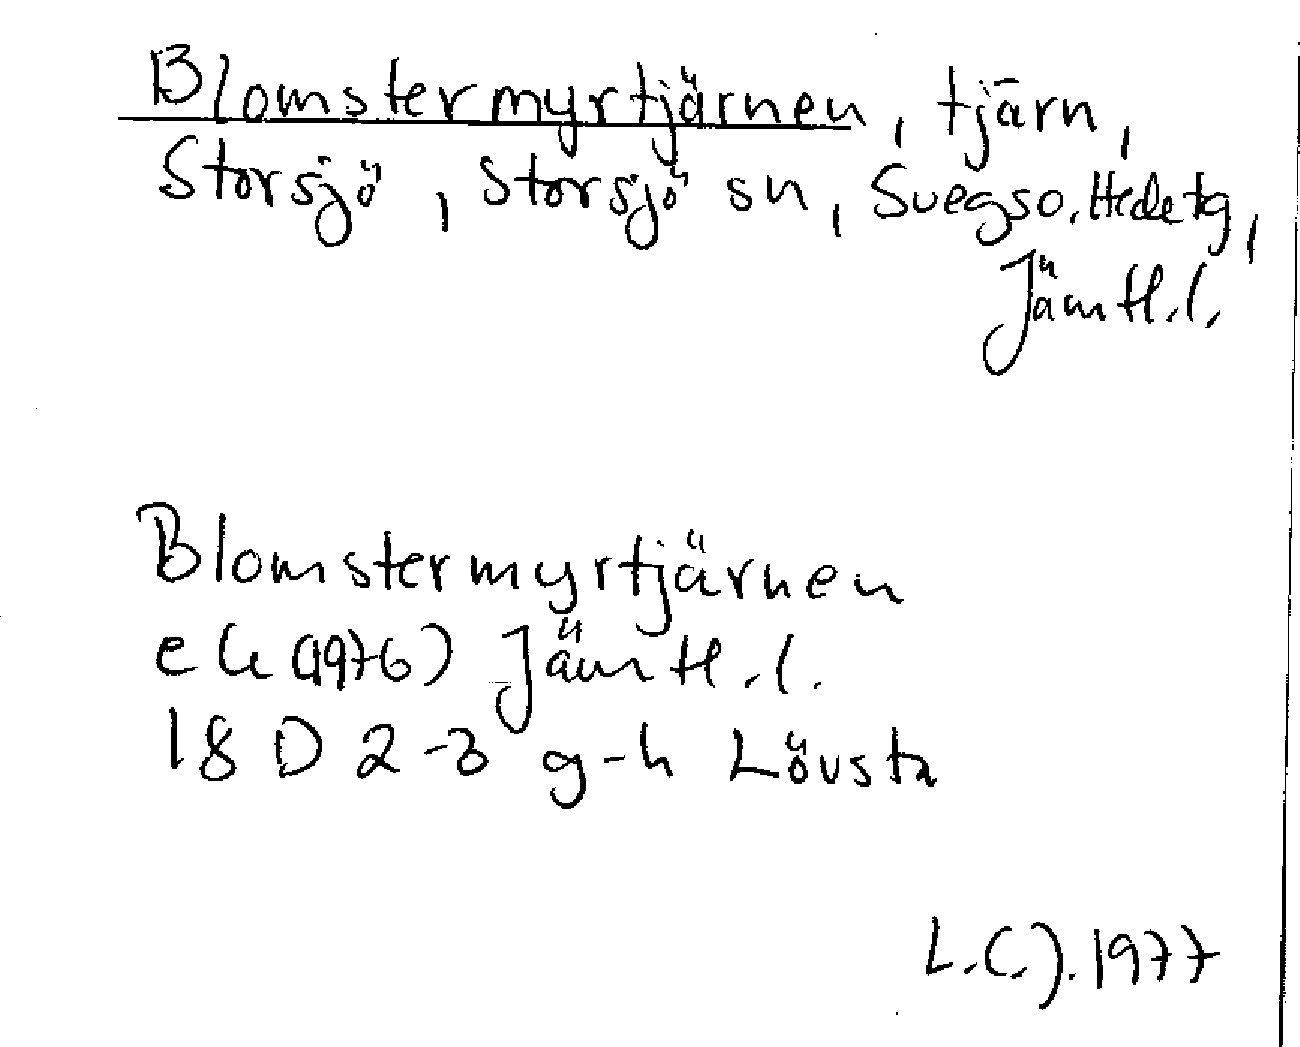 Blomstermyrtjärnen, tjärn,
Storsjö, Storsjö sn, Svegs o. Hede tg,
Jämtl. l.
Blomstermyrtjärnen
ek (1976) Jämtl. l.
18 D 2-3 g-h Lövsta
L.C.J. 1977